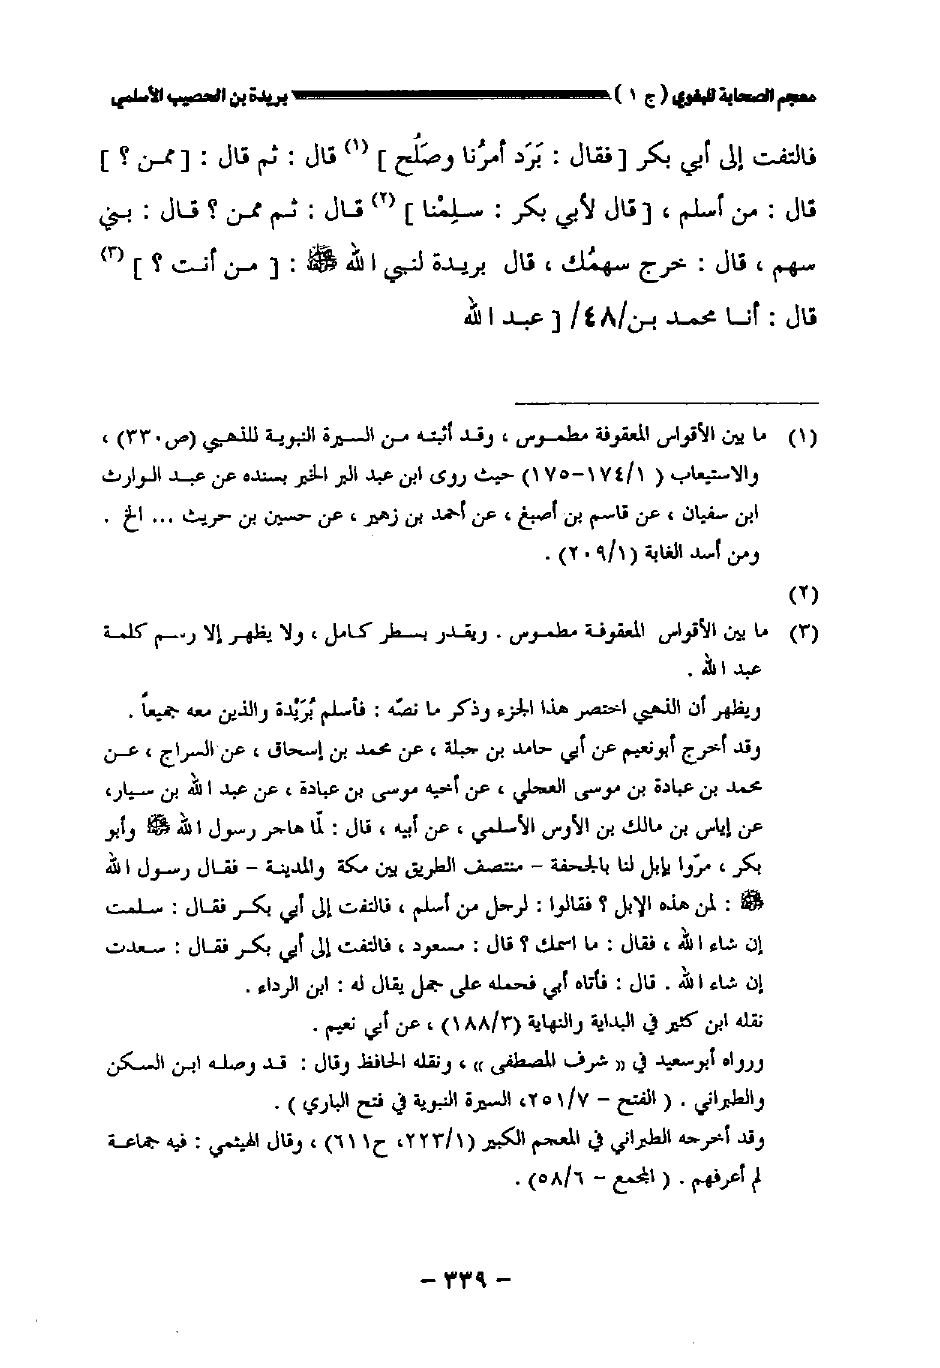 معجم الصحابة للبغوي (ج ١) بريدة بن الحصيب الأسلمي
فالتفت إلى أبي بكر [فقال : بَرَد أمرُنا وصَلُح ] (١) قال : ثم قال : [ ممن ؟ ]
قال : من أسلم ، [ قال لأبي بكر : سلِمْنا ] (٢) قال : ثم ممن ؟ قال : بني
سهم ، قال : خرج سهمُك ، قال بريدة لنبي الله ﷺ : [ من أنت ؟ ] (٣)
قال : أنا محمد بن/٤٨/ [ عبد الله
(١) ما بين الأقواس المعقوفة مطموس ، وقد أثبته من السيرة النبوية للذهبي (ص٣٣٠) ،
والاستيعاب ( ١/ ١٧٤-١٧٥) حيث روى ابن عبد البر الخبر بسنده عن عبد الوارث
ابن سفيان ، عن قاسم بن أصبغ ، عن أحمد بن زهير ، عن حسين بن حريث ... الخ .
ومن أسد الغابة (٢٠٩/١) .
(٢)
(٣) ما بين الأقواس المعقوفة مطموس . ويقدر بسطر كامل ، ولا يظهر إلا رسم كلمة
عبد الله .
ويظهر أن الذهبي اختصر هذا الجزء وذكر ما نصّه : فأسلم بُرَيْدة والذين معه جميعاً .
وقد أخرج أبونعيم عن أبي حامد بن جبلة ، عن محمد بن إسحاق ، عن السراج ، عن
محمد بن عبادة بن موسى العجلي ، عن أخيه موسى بن عبادة ، عن عبد الله بن سيار،
عن إياس بن مالك بن الأوس الأسلمي ، عن أبيه ، قال : لمّا هاجر رسول الله ﷺ وأبو
بكر ، مرّوا بإبل لنا بالجحفة - منتصف الطريق بين مكة والمدينة - فقال رسول الله
ﷺ : لمن هذه الإبل ؟ فقالوا : لرجل من أسلم ، فالتفت إلى أبي بكر فقال : سلمت
إن شاء الله ، فقال : ما اسمك ؟ قال : مسعود ، فالتفت إلى أبي بكر فقال : سعدت
إن شاء الله . قال : فأتاه أبي فحمله على جمل يقال له : ابن الرداء .
نقله ابن كثير في البداية والنهاية (١٨٨/٣) ، عن أبي نعيم .
ورواه أبوسعيد في « شرف المصطفى » ، ونقله الحافظ وقال : قد وصله ابن السكن
والطبراني . ( الفتح - ٢٥١/٧، السيرة النبوية في فتح الباري ) .
وقد أخرجه الطبراني في المعجم الكبير (٢٢٣/١، ح٦١١) ، وقال الهيثمي : فيه جماعة
لم أعرفهم . ( المجمع - ٥٨/٦) .
- ٣٣٩ -